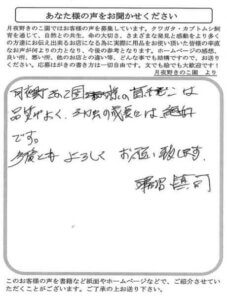 あなた様の声をお聞かせください
月夜野きのこ園ではお客様の声を募集しています。クワガタ・カブトムシ飼
育を通じて、自然との共生、命の大切さ、さまざまな発見と感動をより多く
の方達にお伝え出来るお店になる為に実際に用品をお使い頂いた皆様の率直
なお声が何よりのたからとなり、今後の励みになります。ホームページの感想、
良い所、悪い所、他のお店との違い等、どんな事でも結構ですので、お送りく
ださい。応募はがきの書き方は一切自由です。文でも絵でも大歓迎です!
月夜野きのこ園 より
月夜野きのこ園 の菌糸ビンは
品質がよく、幼虫の成長には
です。
今後とも よろしく お願い致します。
このお客様の声を書籍など紙面やホームページなどで、ご紹介させてい
ただくことがございます。ご了承の上お送り下さい。